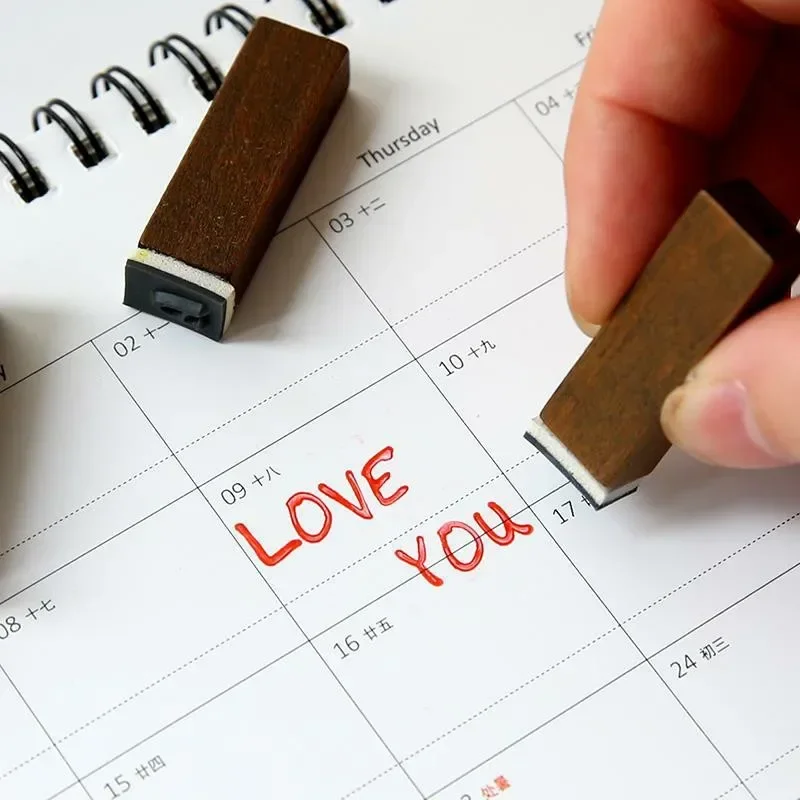 Thursday
02 十一
03 十二
04
08 十七
09 十八
10 十九
LOVE
YOU
15 廿四
16 廿五
17
24 初三
处暑